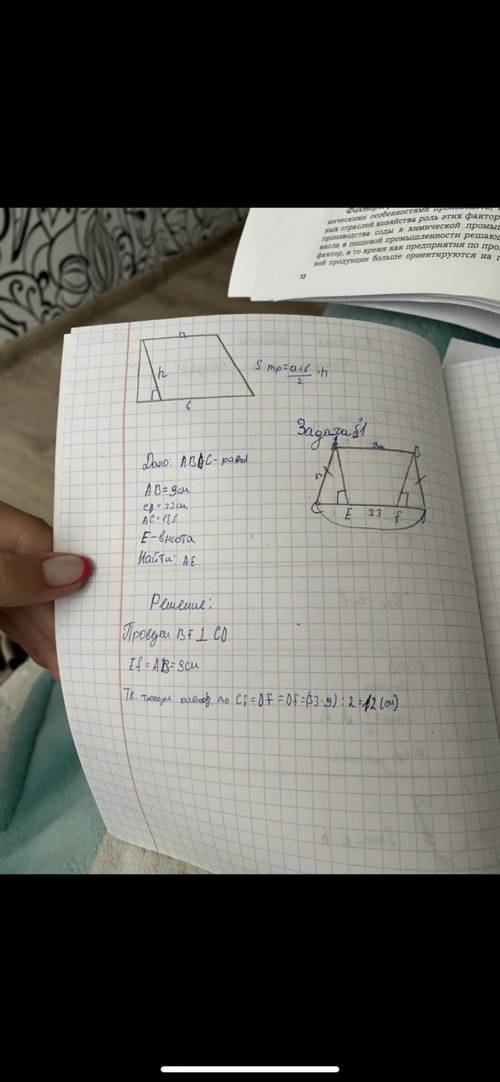 Факторы
мическими особенностями производств,
ных отраслей хозяйства роль этих фактор
производства соды в химической промыш
масла в пищевой промышленности решающ
фактор, в то время как предприятия по про
вой продукции больше ориентируются на п
12
a
h
S тр=a+b/2·h
b
Задача §1
A
B
9
C
E
33
f
Дано: ABDC-равн
AB=9см
AC=15
E-высота
Найти: AE
Решение:
Проведем BF⊥CD
Ef=AB=9см
Тк. равноб, то CE=Df=(33-9):2=12(см)